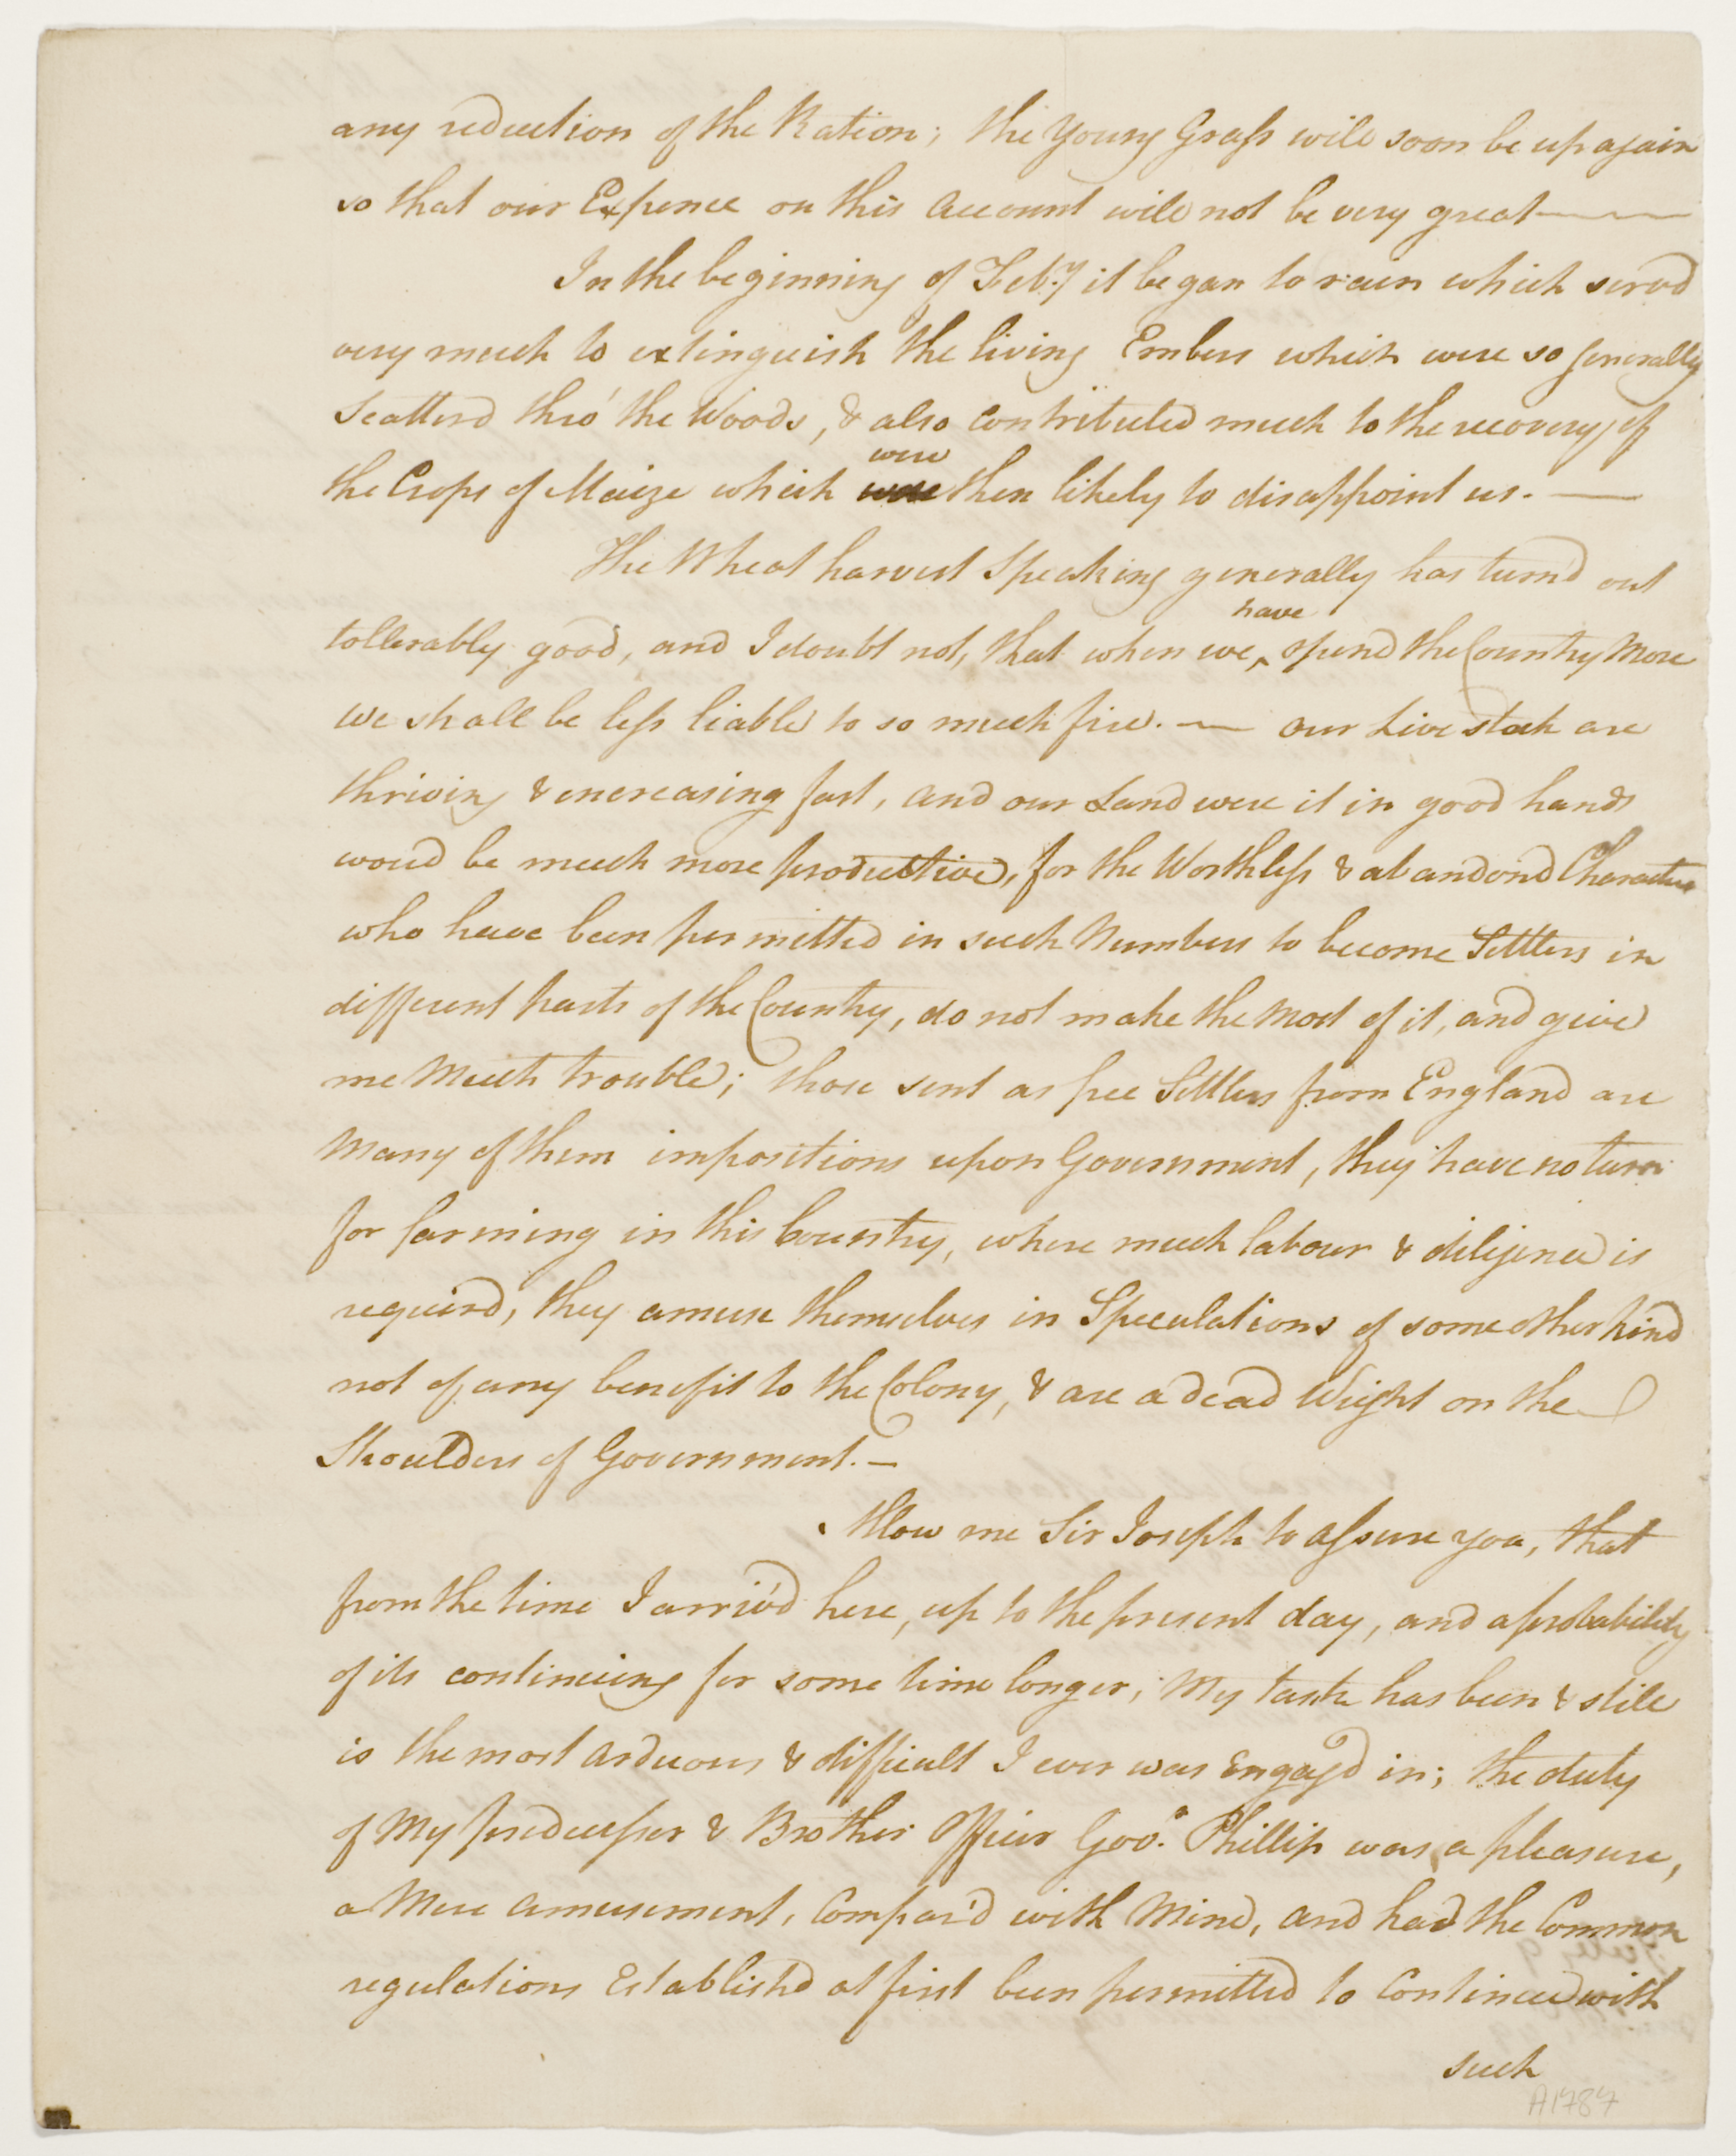 any reduction of the Ration; the Young Grass will soon be up again
so that our Expence on this Account will not be very great——
In the beginning of Feb:y it began to rain which serv'd
very much to extinguish the living Embers which were so generally
Scatterd thro' the Woods, & also contributed much to the recovery of
were
the Crops of Maize which then likely to disappoint us. —
The Wheat harvest Speaking generally has turn'd out
have
tollerably good, and I doubt not, that when we ^ opend the Country More
we shall be less liable to so much fire. — our Live stock are
thriving & encreasing fast, and our Land were it in good hands
woud be much more productive, for the Worthless & abandond Characters
who have been permitted in such Numbers to become Settlers in
different parts of the Country, do not make the Most of it, and give
me Much trouble; those sent as free Settlers from England are
Many of them impositions upon Government, they have no turn
for farming in this Country, where much labour & diligence is
requird, they amuse themselves in Speculations of some other kind
not of any benefit to the Colony, & are a dead Weight on the
Shoulders of Government. —
Allow me Sir Joseph to assure you, that
from the time I arriv'd here, up to the present day, and a probability
of its continuing for some time longer; My task has been & still
is the most arduous & difficult I ever was Engag'd in; the duty
of My predecessor & Brother Officer Gov.r Phillip was a pleasure,
a Mere amusement, Compar'd with Mine, and had the Common
regulations Establish'd at first been permitted to Continue with
such
A1787